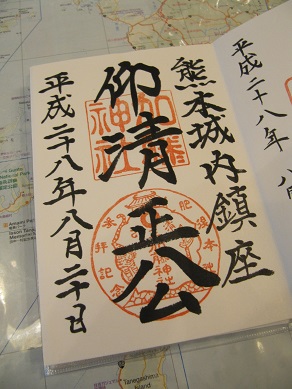 熊本城内鎮座
仰清正公
平成二十八年八月二十日
加藤神社
平成二十八年
Tanegashima
Island